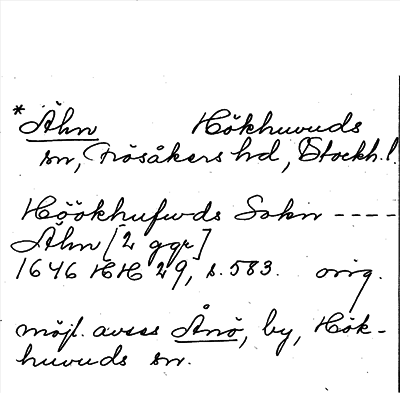 * Åhn Hökhuvuds
sn, Frösåkers hd, Stockh. l.
Höökhufwds Sokn ----
Åhn [2 ggr]
1646 HH 29, s. 583. orig.
möjl. avses Ånö, by, Hök-
huvuds sn.